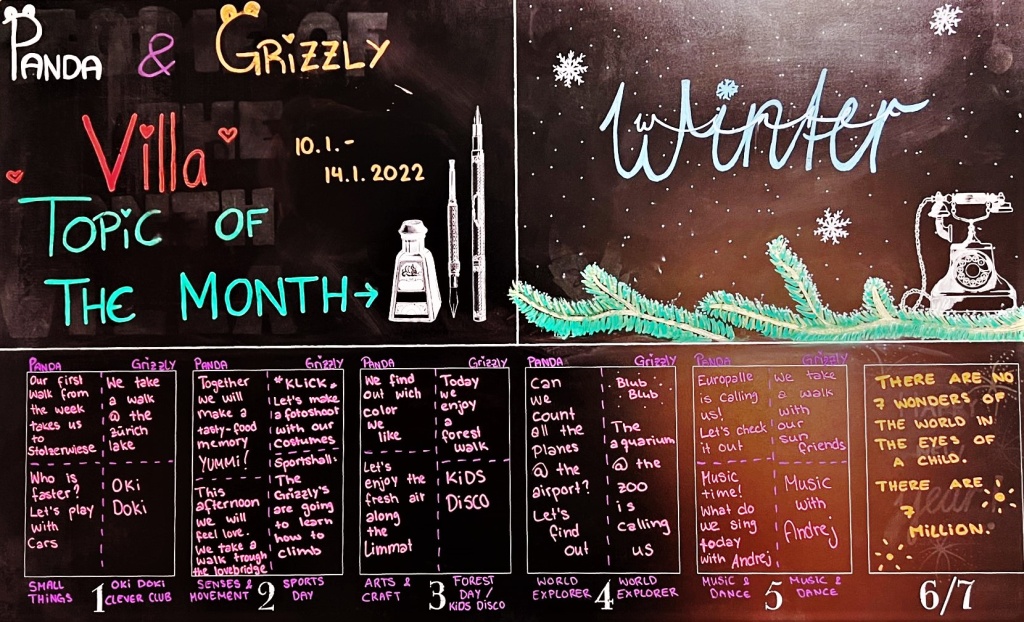 PANDA & GRIZZLY
Villa
10.1.-
14.1.2022
TOPIC OF
THE MONTH→
Winter
PANDA
Our first
Walk from
the week
takes us
to
Stolzerwiese
Who is
faster?
Let's play
with
Cars
Grizzly
We take
a walk
@ the
Zürich
lake
Oki
Doki
PANDA
Together
we will
make a
tasty-food
memory
YUMMI!
This
afternoon
we will
feel love.
We take a
walk trough
the lovebridge
Grizzly
*KLICK*
Let's make
a fotoshoot
with our
costumes
Sportshall:
The
Grizzly's
are going
to learn
how to
climb
PANDA
We find
out wich
color
we
like
Let's
enjoy the
fresh air
along
the
Limmat
Grizzly
Today
we
enjoy
a
forest
walk
KiDS
DiSCO
PANDA
Can
we
count
all the
planes
@ the
airport?
Let's
find
out
Grizzly
Blub
Blub
The
aquarium
@ the
zoo
is
calling
us
PANDA
Europalle
is calling
us!
Let's check
it out
Music
time!
What do
we sing
today
with Andrej
Grizzly
We take
a walk
with
our
sun
friends
Music
with
Andrej
THERE ARE NO
7 WONDERS OF
THE WORLD IN
THE EYES OF
A CHILD.
THERE ARE
7
MILLION.
SMALL
THINGS
1
OKI DOKI
CLEVER CLUB
SENSES &
MOVEMENT
2
SPORTS
DAY
ARTS &
CRAFT
3
FOREST
DAY /
KIDS DISCO
WORLD
EXPLORER
4
WORLD
EXPLORER
MUSIC &
DANCE
5
MUSIC &
DANCE
6/7